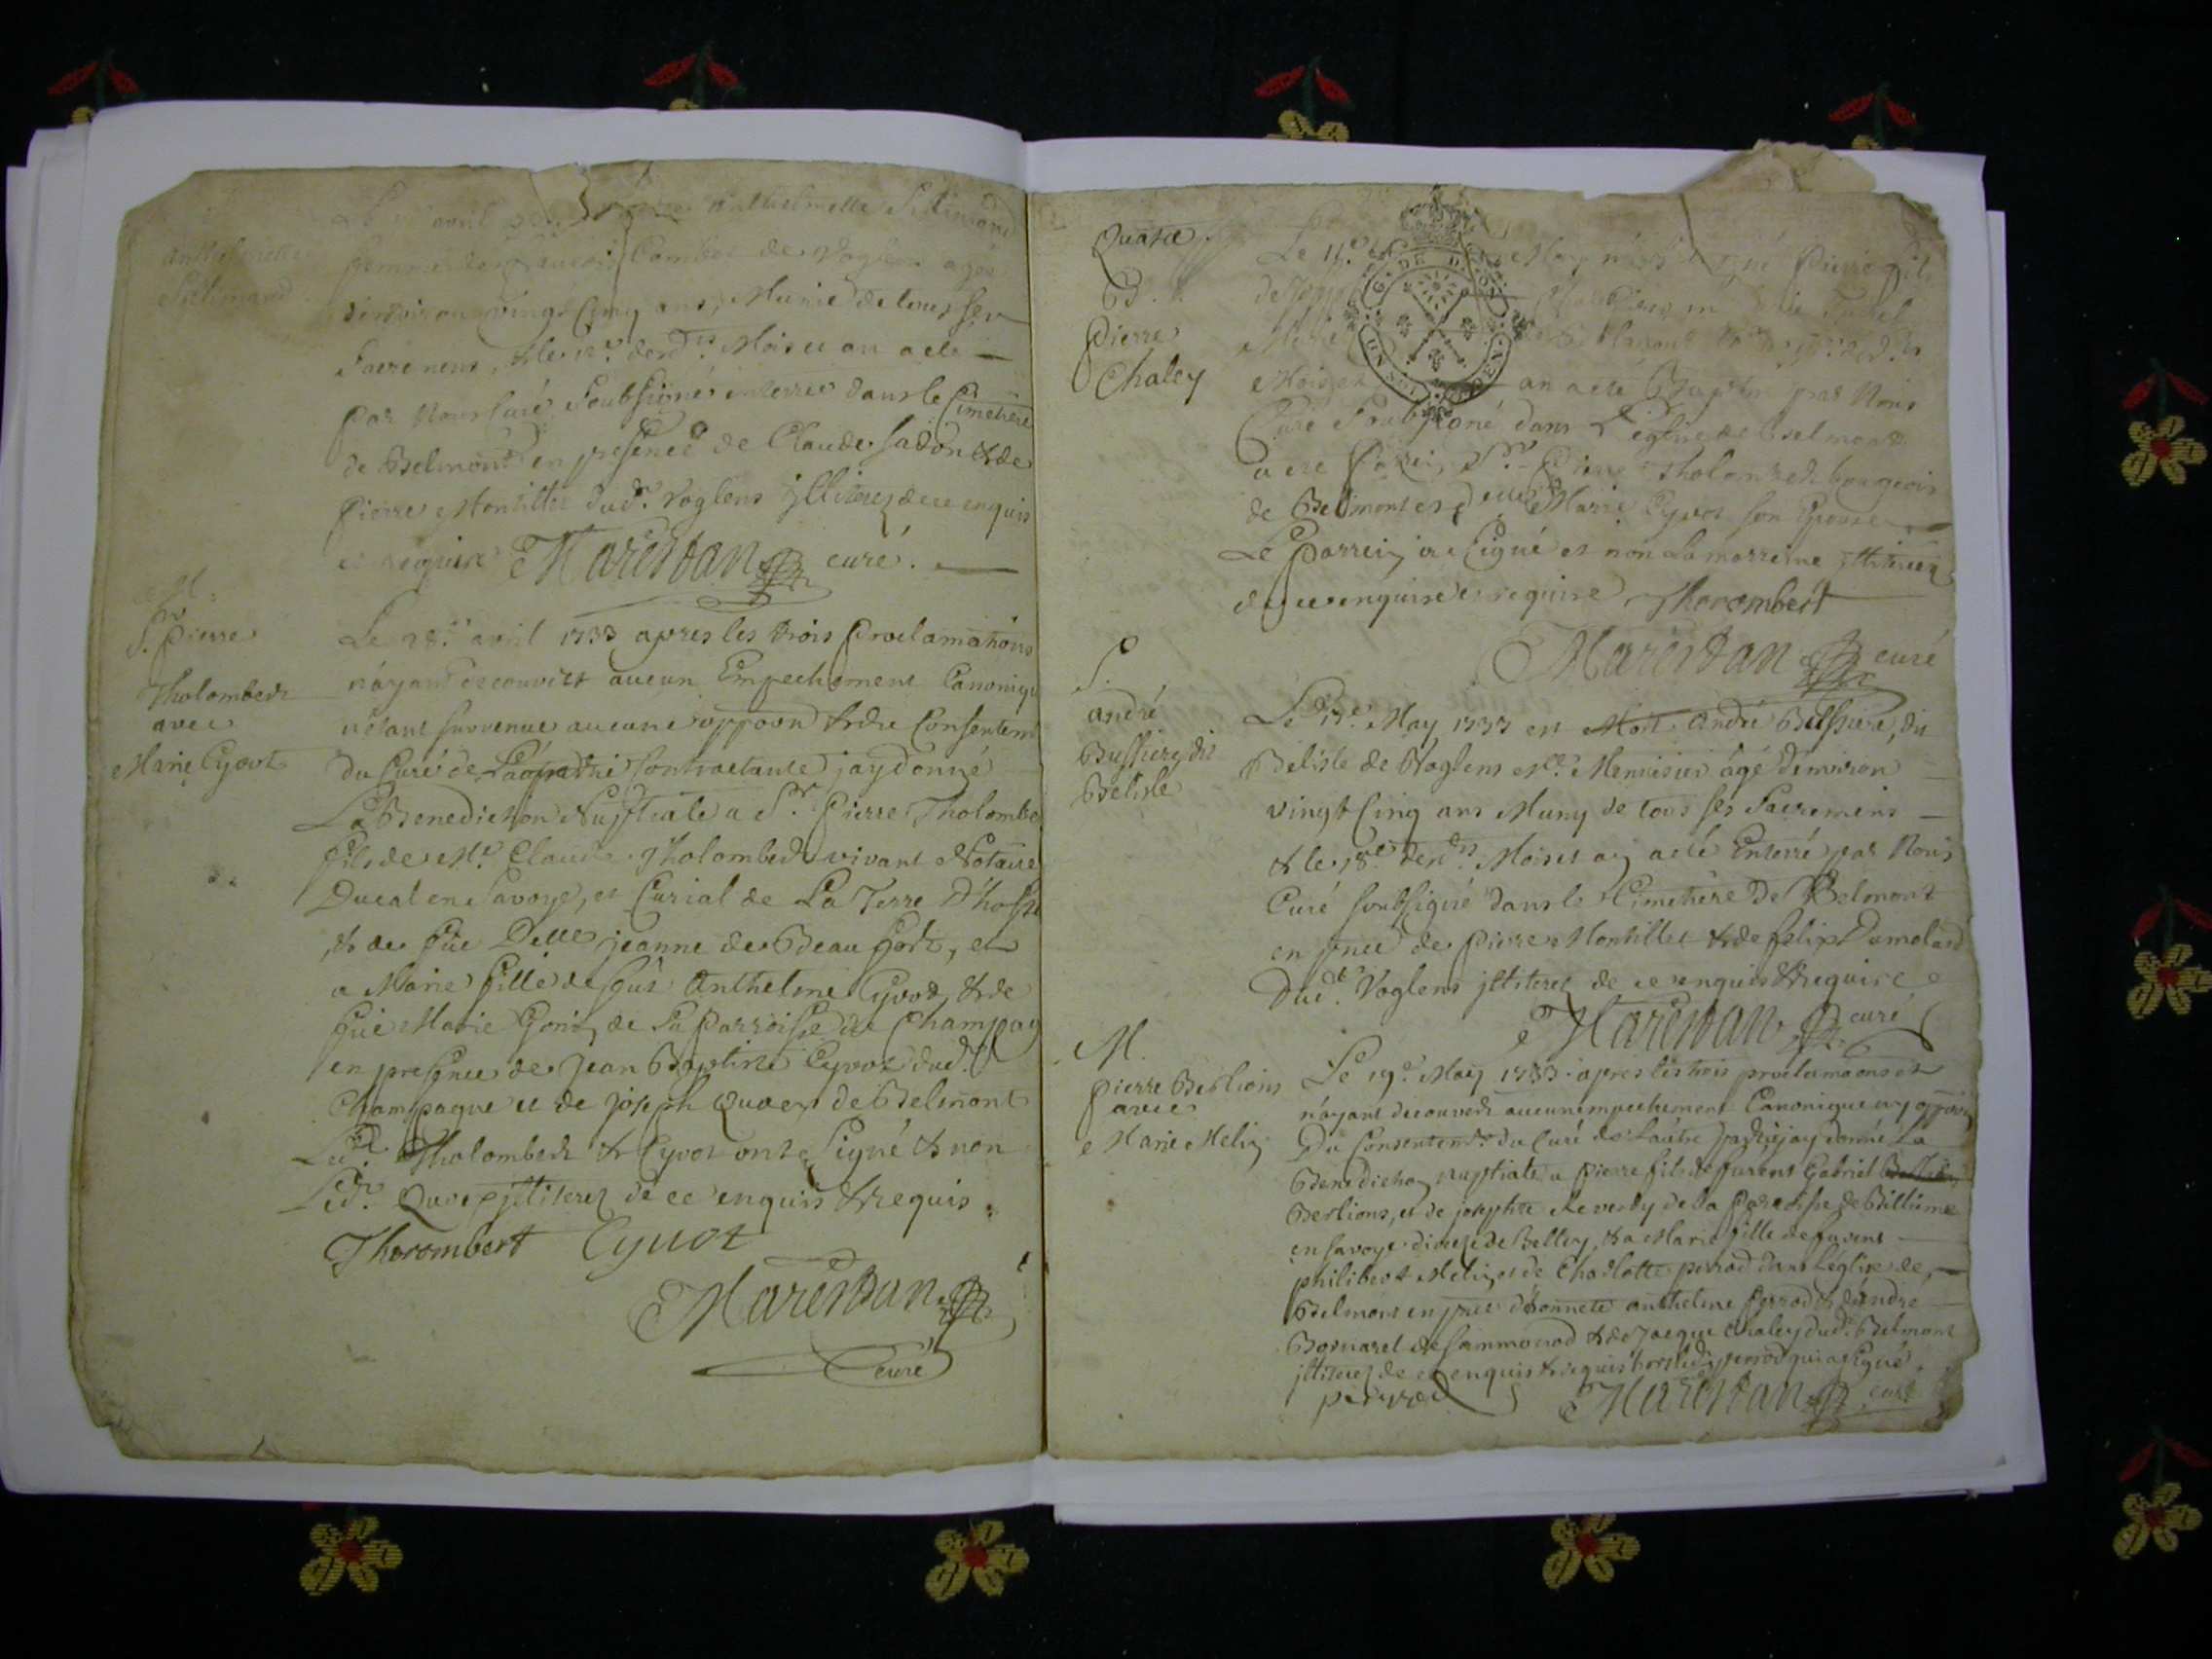 avril Anthelmette
femme de Combet de Voglens agée
d'environ vingt Cinq ans, Munie de tous ses
Sacremens, & le 12.e desd.ts Mois et an a été
par Nous Curé Soubsigné enterrée dans le Cimetiere
de Belmont en presence de Claude Jadon & de
Pierre Montillet dud.t Voglens jllitterez de ce enquis
et requis Marestan curé.
M.
S.r Pierre
Tholombert
avec
Marie Cyvot
Le 28.e avril 1733 apres les trois Proclamations
n'ayant decouvert aucun Empechement Canoniqu
n'étant survenue aucune oppoõn & du Consentem
du Curé de La contractante j'ay donné
La Benediction Nuptiale a S.r Pierre Tholombe
fils de M.e Claude Tholombert vivant Notaire
Ducal en Savoye, et Curial de La Terre
& de füe Delle jeanne de Beaufort, et
a Marie fille de feû Anthelme Cyvot, & de
füe Marie Gonin de La Parroisse de Champag
en presence de Jean Baptiste Cyvot dud.t
Champagne et de Joseph Quaex de Belmont
Led.t Tholombert & Cyvot ont Signé & non
Led.t Quaex jllitterez de ce enquis & requis.
Thorombert Cyvot
Marestan
curé
Quatre
Bd.
Pierre
Chaley
Le 11.e May Pierre fils
de
Mois an a été Baptisé par Nous
Curé Soubsigné dans L'église de Belmont
a été Parrein S.r Pierre Tholombert bourgeois
de Belmont et delle Marie Cyvot son Epouse
Le Parrein a Signé et non La marreine jllitterée
de ce enquise et requise Thorombert
Marestan curé
S.
andré
Bussiere dit
Belisle
Le 17.e May 1733 est Mort andré Bussiere, dit
Belisle de Voglens M.e Menuisier âgé d'environ
vingt Cinq ans Muny de tous ses Sacremens
& le 18.e desd.ts Mois et an a été Enterré par Nous
Curé soubsigné dans le Cimetiere de Belmont
en pnce de Pierre Montillet & de felix Dumolard
Dud.t Voglens jllitterez de ce enquis & requis
Marestan curé
M.
Pierre Berlions
avec
Marie Melin
Le 19.e May 1733 apres les trois proclamaõns et
n'ayant decouvert aucun empechement Canonique ny oppoõn
Du Consentem.t du Curé de L'autre partie j'ay donné La
Benediction nuptiale a Pierre fils de furent Gabriel
Berlions, et de josephte Reverdy de La Parroisse de Billieme
en Savoye dioceze de Belley, & a Marie fille de furent
philibert Melin et de Charlotte perrod dans L'église de
Belmont en pnce d'honnete anthelme perrod d'andré
Bornarel de Sammonod & de Jacque Chaley dud.t Belmont
jllitterez de ce enquis & requis hors led.t perrod qui a signé.
perrod Marestan curé